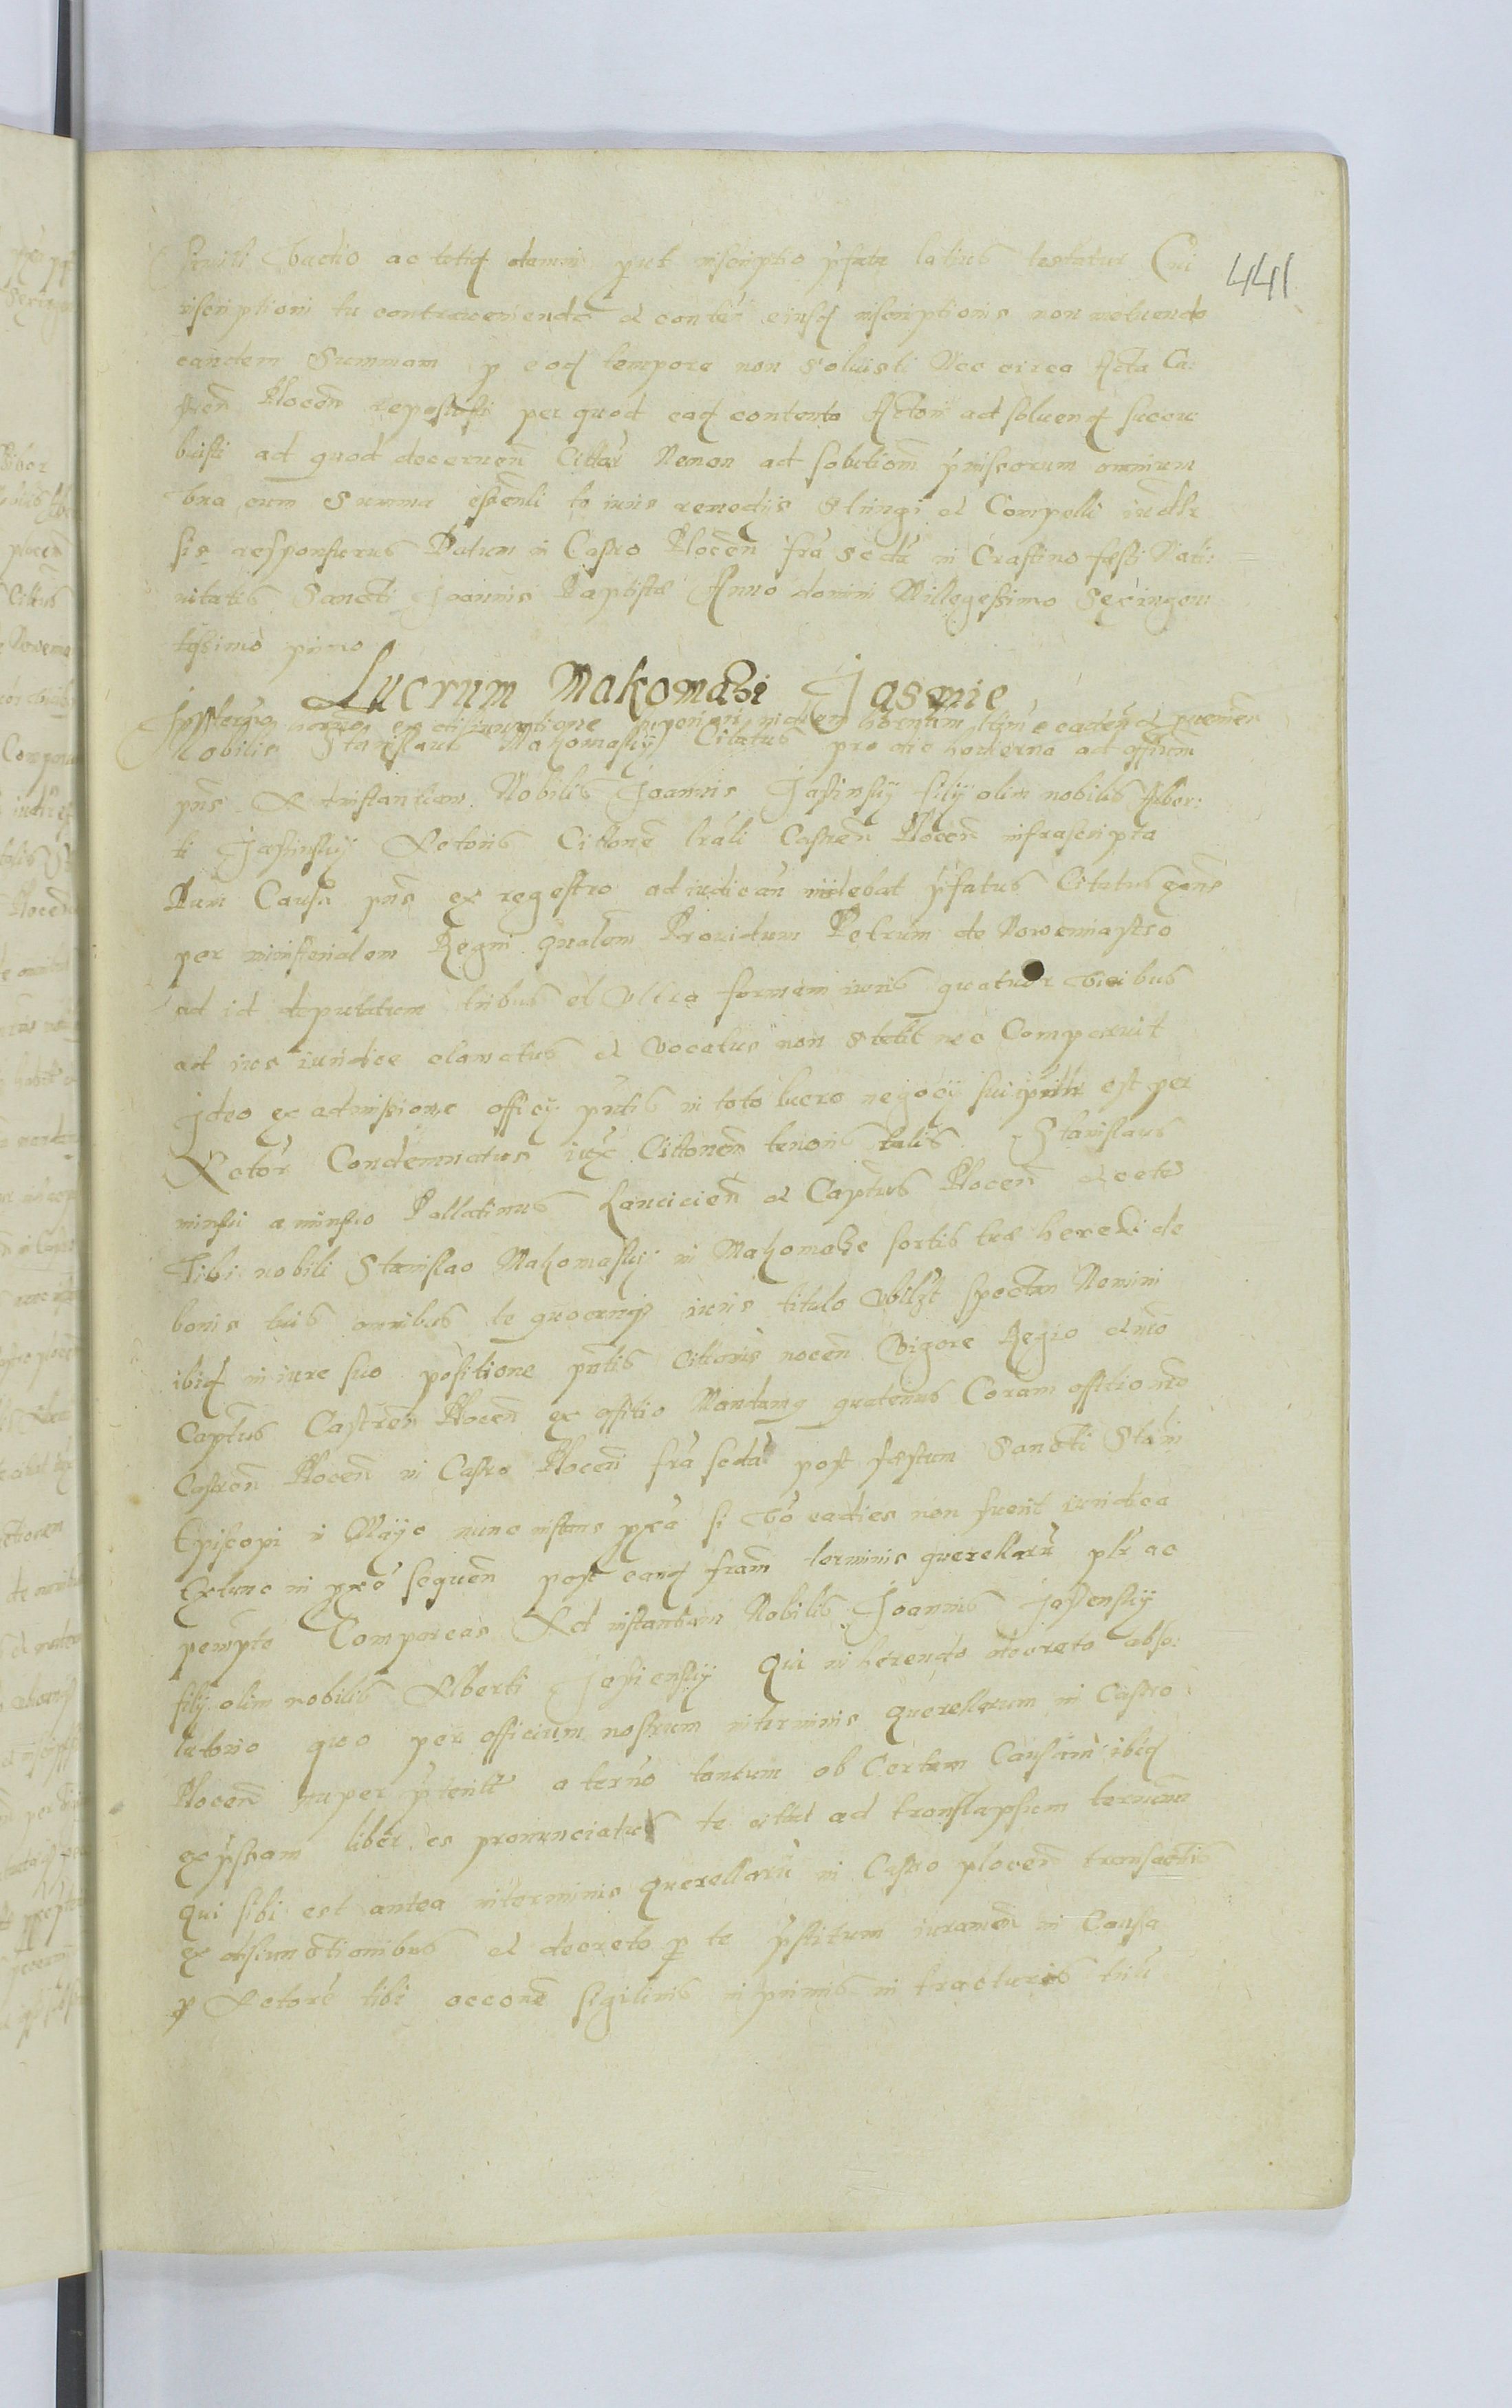 simili vadio ac totiq damni put inscriptio pfata latius testatur Cui
inscriptioni tu contraveniendo et conten eiusq inscriptionis non metuendo
eandem Summam p eoq tempore non soluisti Nec circa Acta Ca:
stren Plocen reposuisti per quod eaq contenta Actori ad soluenq succu:
buisti ad quod decernen Cittar Nemon ad solutionem pmissorum omnium
vna cum Summa iuris remedijs Stringi et Compelli
sis responsurus Datum in Castro Plocen fra scda in Crastino festi Nati:
uitatis Sancti Joannis Baptistae Anno domini Millegessimo Sexingen
tesimo primo
441
Lucrum Makomaski Jasmie
Nobilis Stanislaus Makomaskij Citatus pro die hodierna ad officium
pns Ad instantiam Nobilis Joannis Jasinskij filij olim nobilis Alber:
ti Jasinskij Actoris Cittone lrali Castren Plocen infrascripta
Dum Causa pns ex regestro adiudican videbat pfatus Citatus
per ministerialem Regni gnalem Prouidum Petrum de Nowemiastro
ad id deputatum tribus et vltra formam iuris quatuor vicibus
ad ius iuridice clamatus et vocatus non stetit nec Comparuit
Ideo ex admissione officij pntis in toto lucro negocij sui est per
Actor Condemnatus iux Cittonem tenoris talis Stanislaus
minski a minsko Pallatinus Lancicien et Captus Plocen et cete
Tibi nobili Stanislao Makomaskij in Makomaze sortis tuae heredi de
bonis tuis omnibus te quocunq iuris titulo vbilzt spectan Nomini
ibiq in iure suo positione pntis Cittonis nocen Vigore Regio et nro
Captus Castren Plocen ex offitio Mandamq quatenus Coram offitio nro
Castren Plocen in Castro Plocen fra scda post festum Sancti Stani
Episcopi in Mayo nunc instans pxa si vo eadies non fuerit iuridica
Extunc in pxe sequen post eanq fram terminis querellaru plr ac
pempte Compareas Ad instantiam Nobilis Joannis Jasienskij
filij olim nobilis Alberti Jasienskij Qui in herendo decreto abso:
lutorio quo per officium nostrum in terminis querellarum in Castro
Plocen nuper a terno tantum ob Certam Causam ibiq
expssam liber es pronunciatus te citat ad translapsum ternum
qui sibi est antea in terminis querellaru in Castro plocen transactis
ex disiunctionibus et decreto p te pstitum iuramen in Causa
p Actore tibi occone sigilinis in primis in fracturis